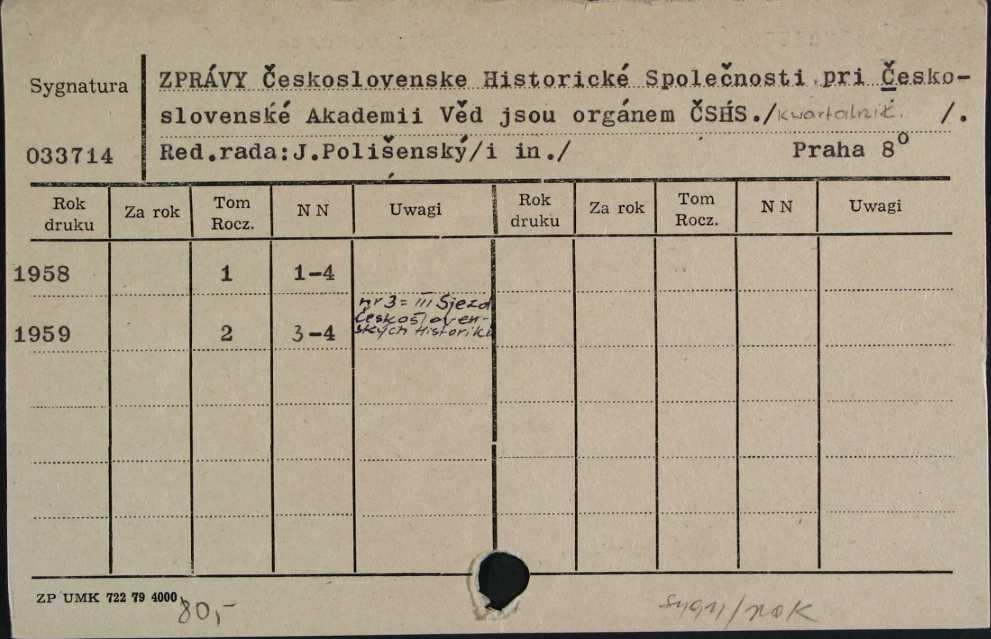 Sygnatura
033714
ZPRÁVY Československe Historické Společnosti pri Česko-
slovenské Akademii Věd jsou orgánem ČSHS./kwartalnik. /.
Red.rada:J.Polišenský/i in./ Praha 8⁰
Rok druku Za rok Tom Rocz. N N Uwagi Rok druku Za rok Tom Rocz. N N Uwagi
1958 1 1-4
1959 2 3-4
nr 3 = III Sjezd
Českosloven-
ských Historiků
ZP UMK 722 79 4000
80,-
sygn/rok